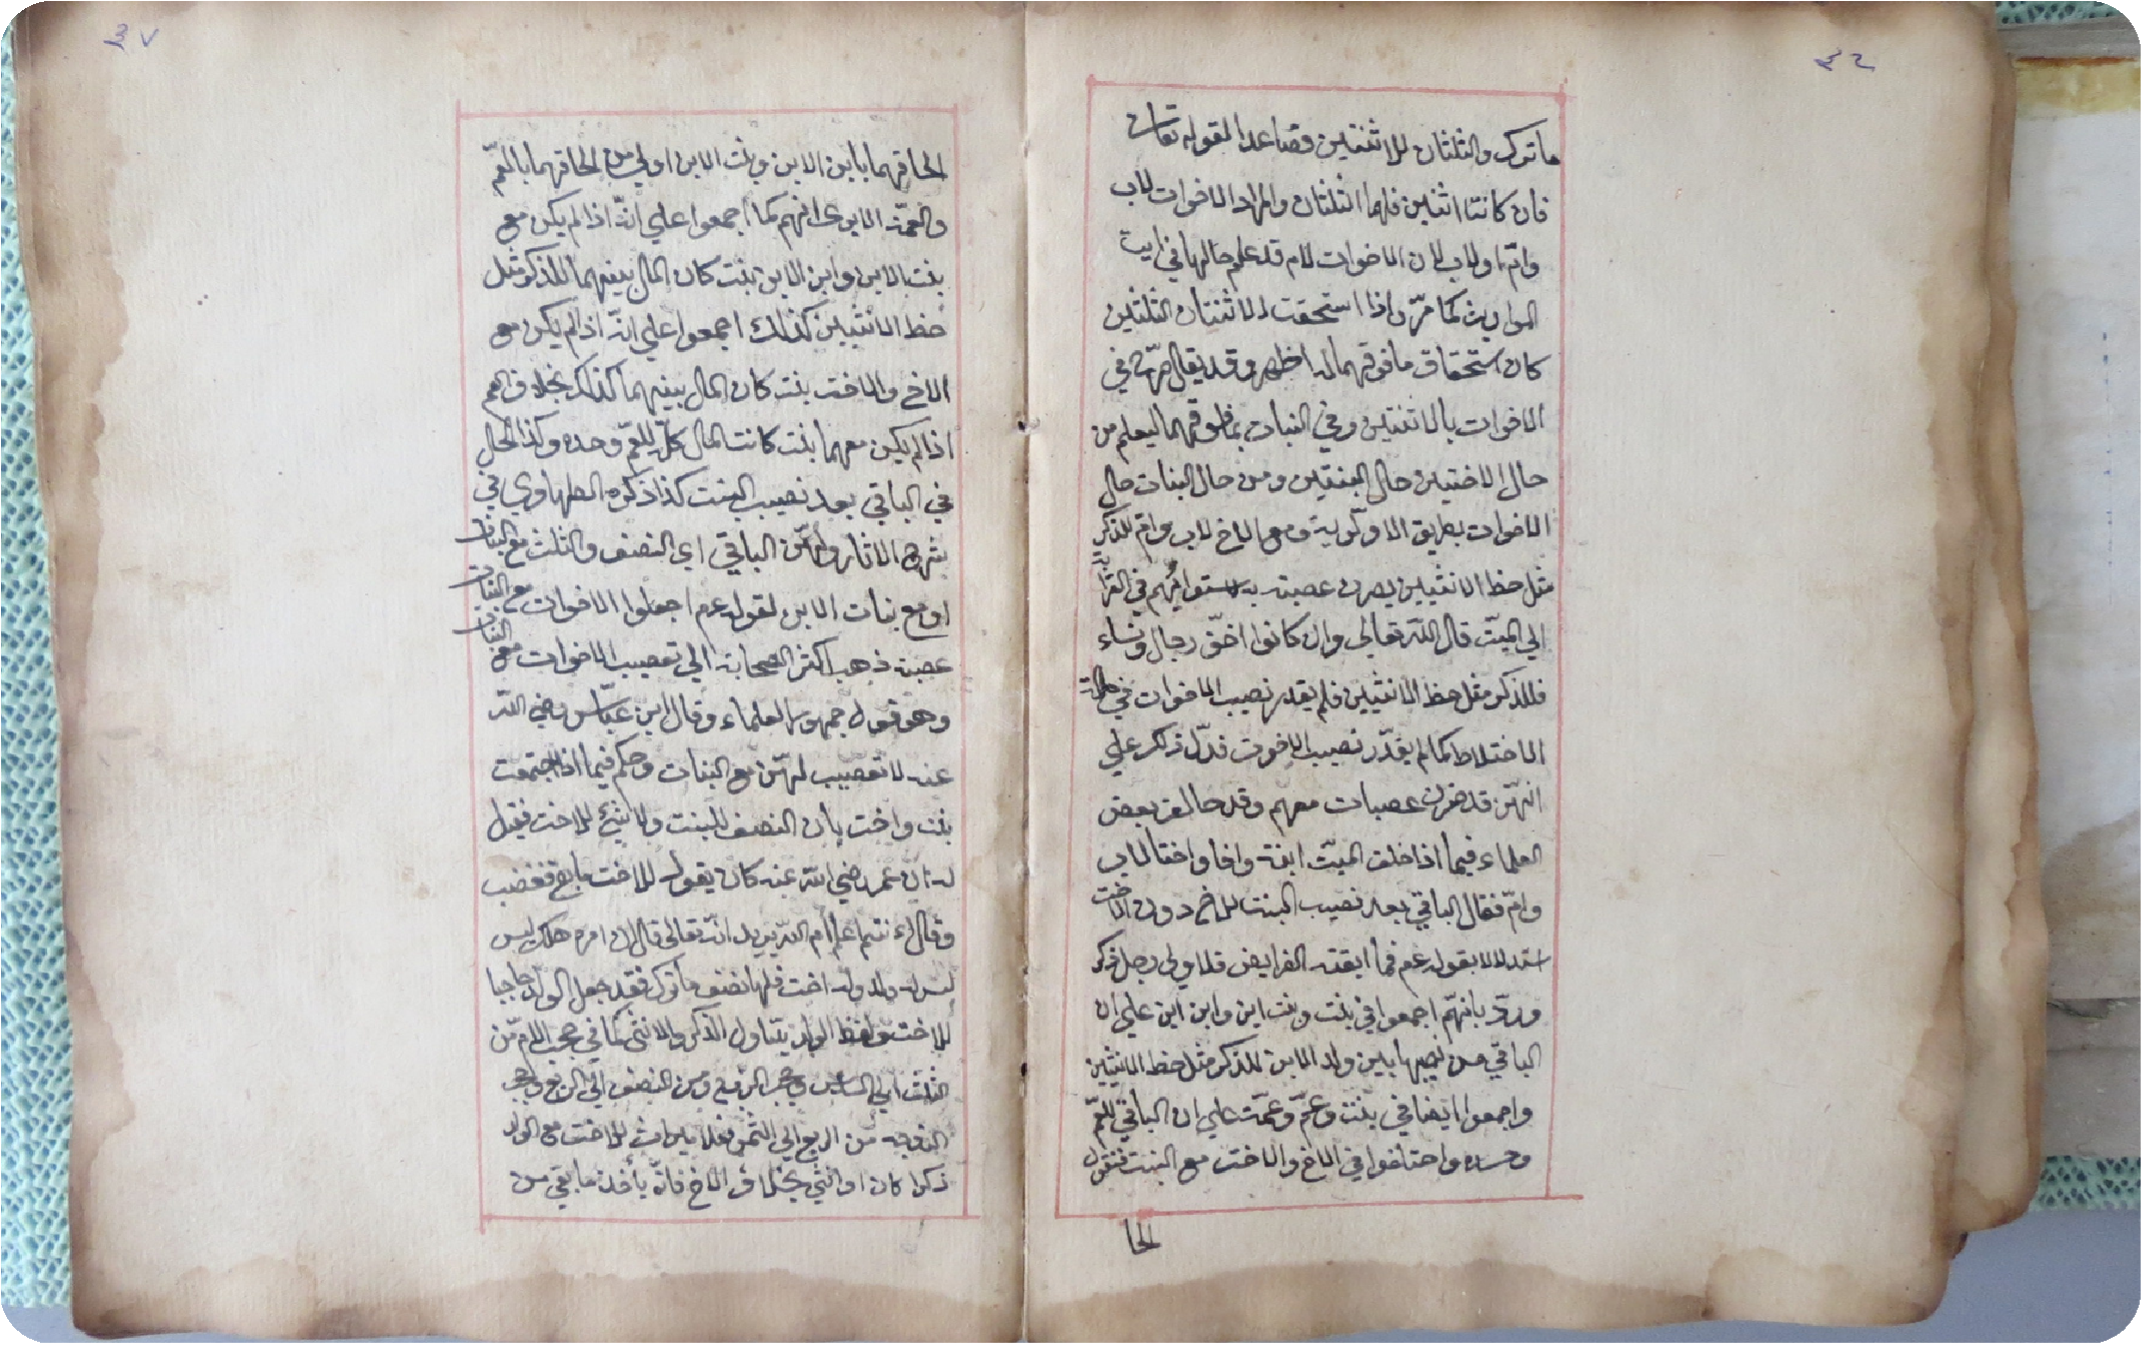 ٣٦
ما ترك والثلثان للاثنتين فصاعدا لقوله تعالى
فان كانتا اثنتين فلهما الثلثان والمراد الاخوات لاب
وام او لاب لان الاخوات لام قد علم حالها في اية
المواريث كما مرّ واذا استحقت الاثنتان الثلثين
كان استحقاق ما فوقهما له اظهر وقد يقال صرّح في
الاخوات بالاثنتين وفي البنات بما فوقهما ليعلم من
حال الاختين حال البنتين ومن حال البنات حال
الاخوات بطريق الاولوية ومع الاخ لاب وام للذكر
مثل حظ الانثيين يصرن عصبة به لاستوائهم في القرابة
الي الميّت قال اللّه تعالي وان كانوا اخوّة رجالا ونساء
فللذكر مثل حظ الانثيين فلم يقدر نصيب الاخوات في حالة
الاختلاط كما لم يقدّر نصيب الاخوة فدلّ ذلك علي
انهنّ قد صرن عصبات معهم وقد خالف بعض
العلماء فيما اذا خلف الميّت ابنة واخا واختا لاب
وامّ فقال الباقي بعد نصيب البنت للاخ دون الاخت
استدلالا بقوله عم فما ابقته الفرايض فلاولى رجل ذكر
وردّ بانهّم اجمعوا في بنت وبنت ابن وابن ابن علي ان
الباقي من نصيبها بين ولد الابن للذكر مثل حظ الانثيين
واجمعوا ايضا في بنت وعمّ وعمّة علي ان الباقي للعمّ
وحده واختلفوا في الاخ والاخت مع البنت فنقول
الحا
٣٧
الحاقهما بابن الابن وبنت الابن اولى من الحاقهما بالعمّ
والعمّة الا يرى انهم كما اجمعوا علي انّه اذا لم يكن مع
بنت الابن وابن الابن بنت كان المال بينهما للذكر مثل
حظ الانثيين كذلك اجمعوا علي انّه اذا لم يكن مع
الاخ والاخت بنت كان المال بينهما كذلك بخلاف العم
اذا لم يكن معهما بنت كانت المال كلّه للعمّ وحده وكذا الحال
في الباقي بعد نصيب البنت كذا ذكره الطهاوي في
شرح الاثار ولهنّ الباقي اي النصف والثلث مع البنات
او مع بنات الابن لقوله عم اجعلوا الاخوات مع البنات
عصبة ذهب اكثر الصحابة الي تعصيب الاخوات مع البنات
وهو قول جمهور العلماء وقال ابن عبّاس رضي اللّه
عنه لا تعصيب لهنّ مع البنات وحكم فيما اذا اجتمعت
بنت واخت بان النصف للبنت ولا شيئ للاخت فقيل
له ان عمر رضي اللّه عنه كان يقول للاخت ما بقي فغضب
وقال ءانتم اعلم ام اللّه يريد انّه تعالى قال ان امرء هلك ليس
ليس له ولد وله اخت فلها نصف ما ترك فقد جعل الولد حاجبا
للاخت ولفظ الولد يتناول الذكر والانثى كما في حجب الامّ من
الثلث الي السدس وحجب الزوج من النصف الي الربع وحجب
الزوجة من الربع الي الثمن فلا ميراث للاخت مع الولد
ذكرا كان او انثي بخلاف الاخ فانّه يأخذ ما بقي من